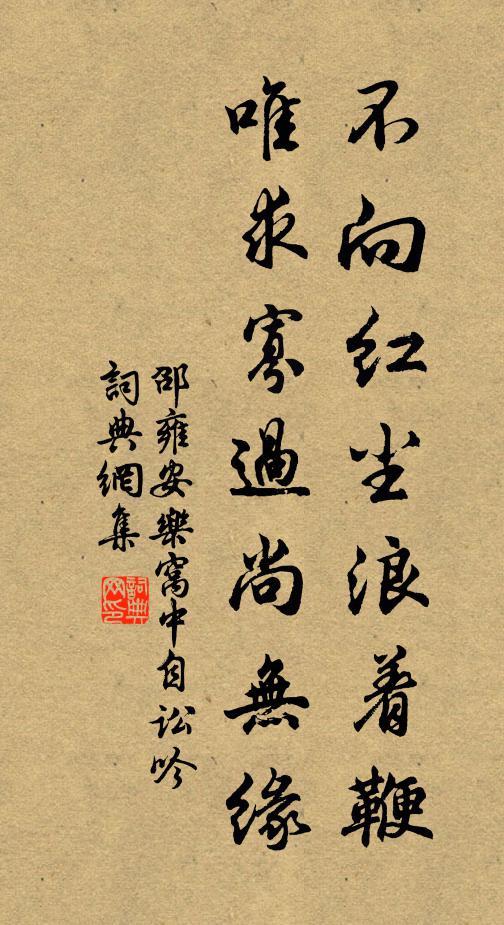 不向红尘浪着鞭
唯求寡過尚無緣
邵雍安樂窩中自訟吟
詞典網集
詞典网印